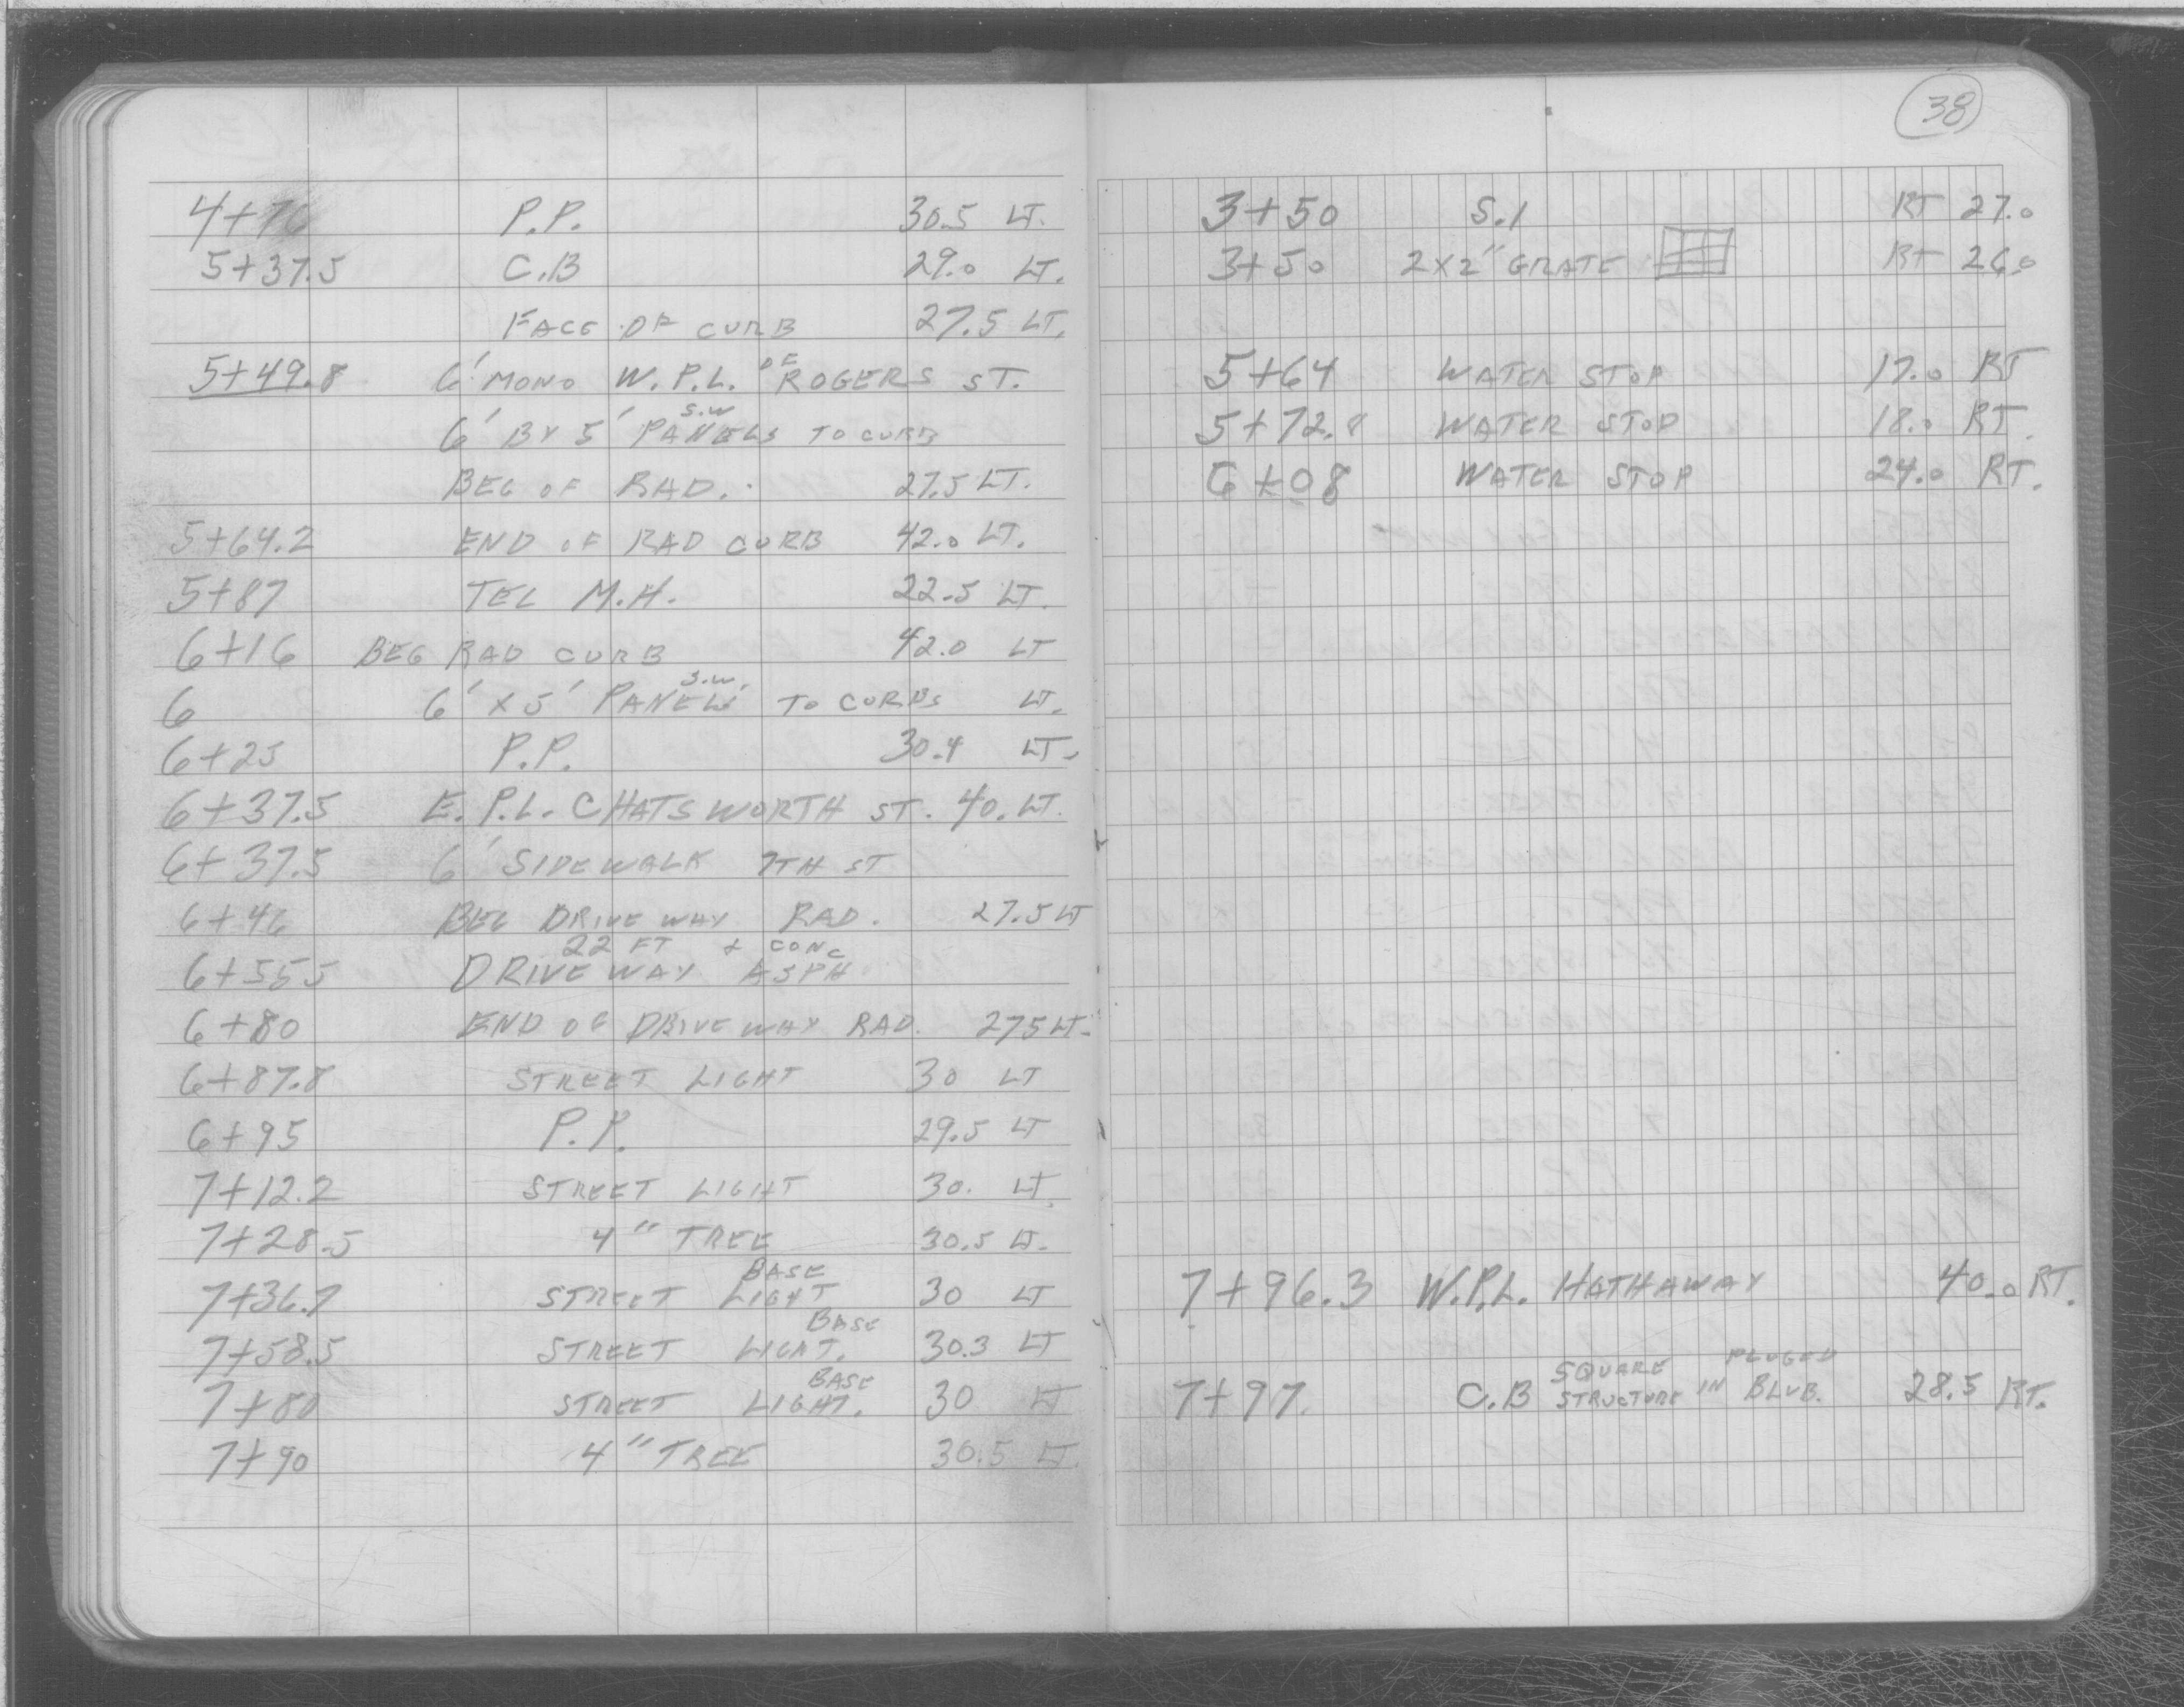 4+76 P.P. 30.5 LT.
5+37.5 C.B 29.0 LT.
FACE OF CURB 27.5 LT.
5+49.8 6' MONO W.P.L. OF ROGERS ST.
6' BY 5' S.W PANELS TO CURB
BEG OF RAD. 27.5 LT.
5+64.2 END OF RAD CURB 42.0 LT.
5+87 TEL M.H. 22.5 LT.
6+16 BEG RAD CURB 42.0 LT
6 6' X 5' S.W. PANELS TO CURBS LT.
6+25 P.P. 30.4 LT.
6+37.5 E.P.L. CHATSWORTH ST. 40. LT.
6+37.5 6' SIDEWALK 7TH ST
6+46 BEG DRIVEWAY RAD. 27.5 LT
22 FT & CONC
6+555 DRIVEWAY ASPH
6+80 END OF DRIVEWAY RAD. 275 LT.
6+87.8 STREET LIGHT 30 LT
6+95 P.P. 29.5 LT
7+12.2 STREET LIGHT 30. LT.
7+28.5 4" TREE 30.5 LT.
7+36.7 STREET LIGHT BASE 30 LT
7+58.5 STREET LIGHT. BASE 30.3 LT
7+80 STREET LIGHT. BASE 30 LT
7+90 4" TREE 30.5 LT.
38
3+50 S.1 RT 27.0
3+50 2X2" GRATE RT 26.0
5+64 WATER STOP 17.0 RT
5+72.8 WATER STOP 18.0 RT.
6+08 WATER STOP 24.0 RT.
7+96.3 W.P.L. HATHAWAY 40.0 RT.
SQUARE PLUGED
7+97. C.B STRUCTURE IN BLVB. 28.5 RT.